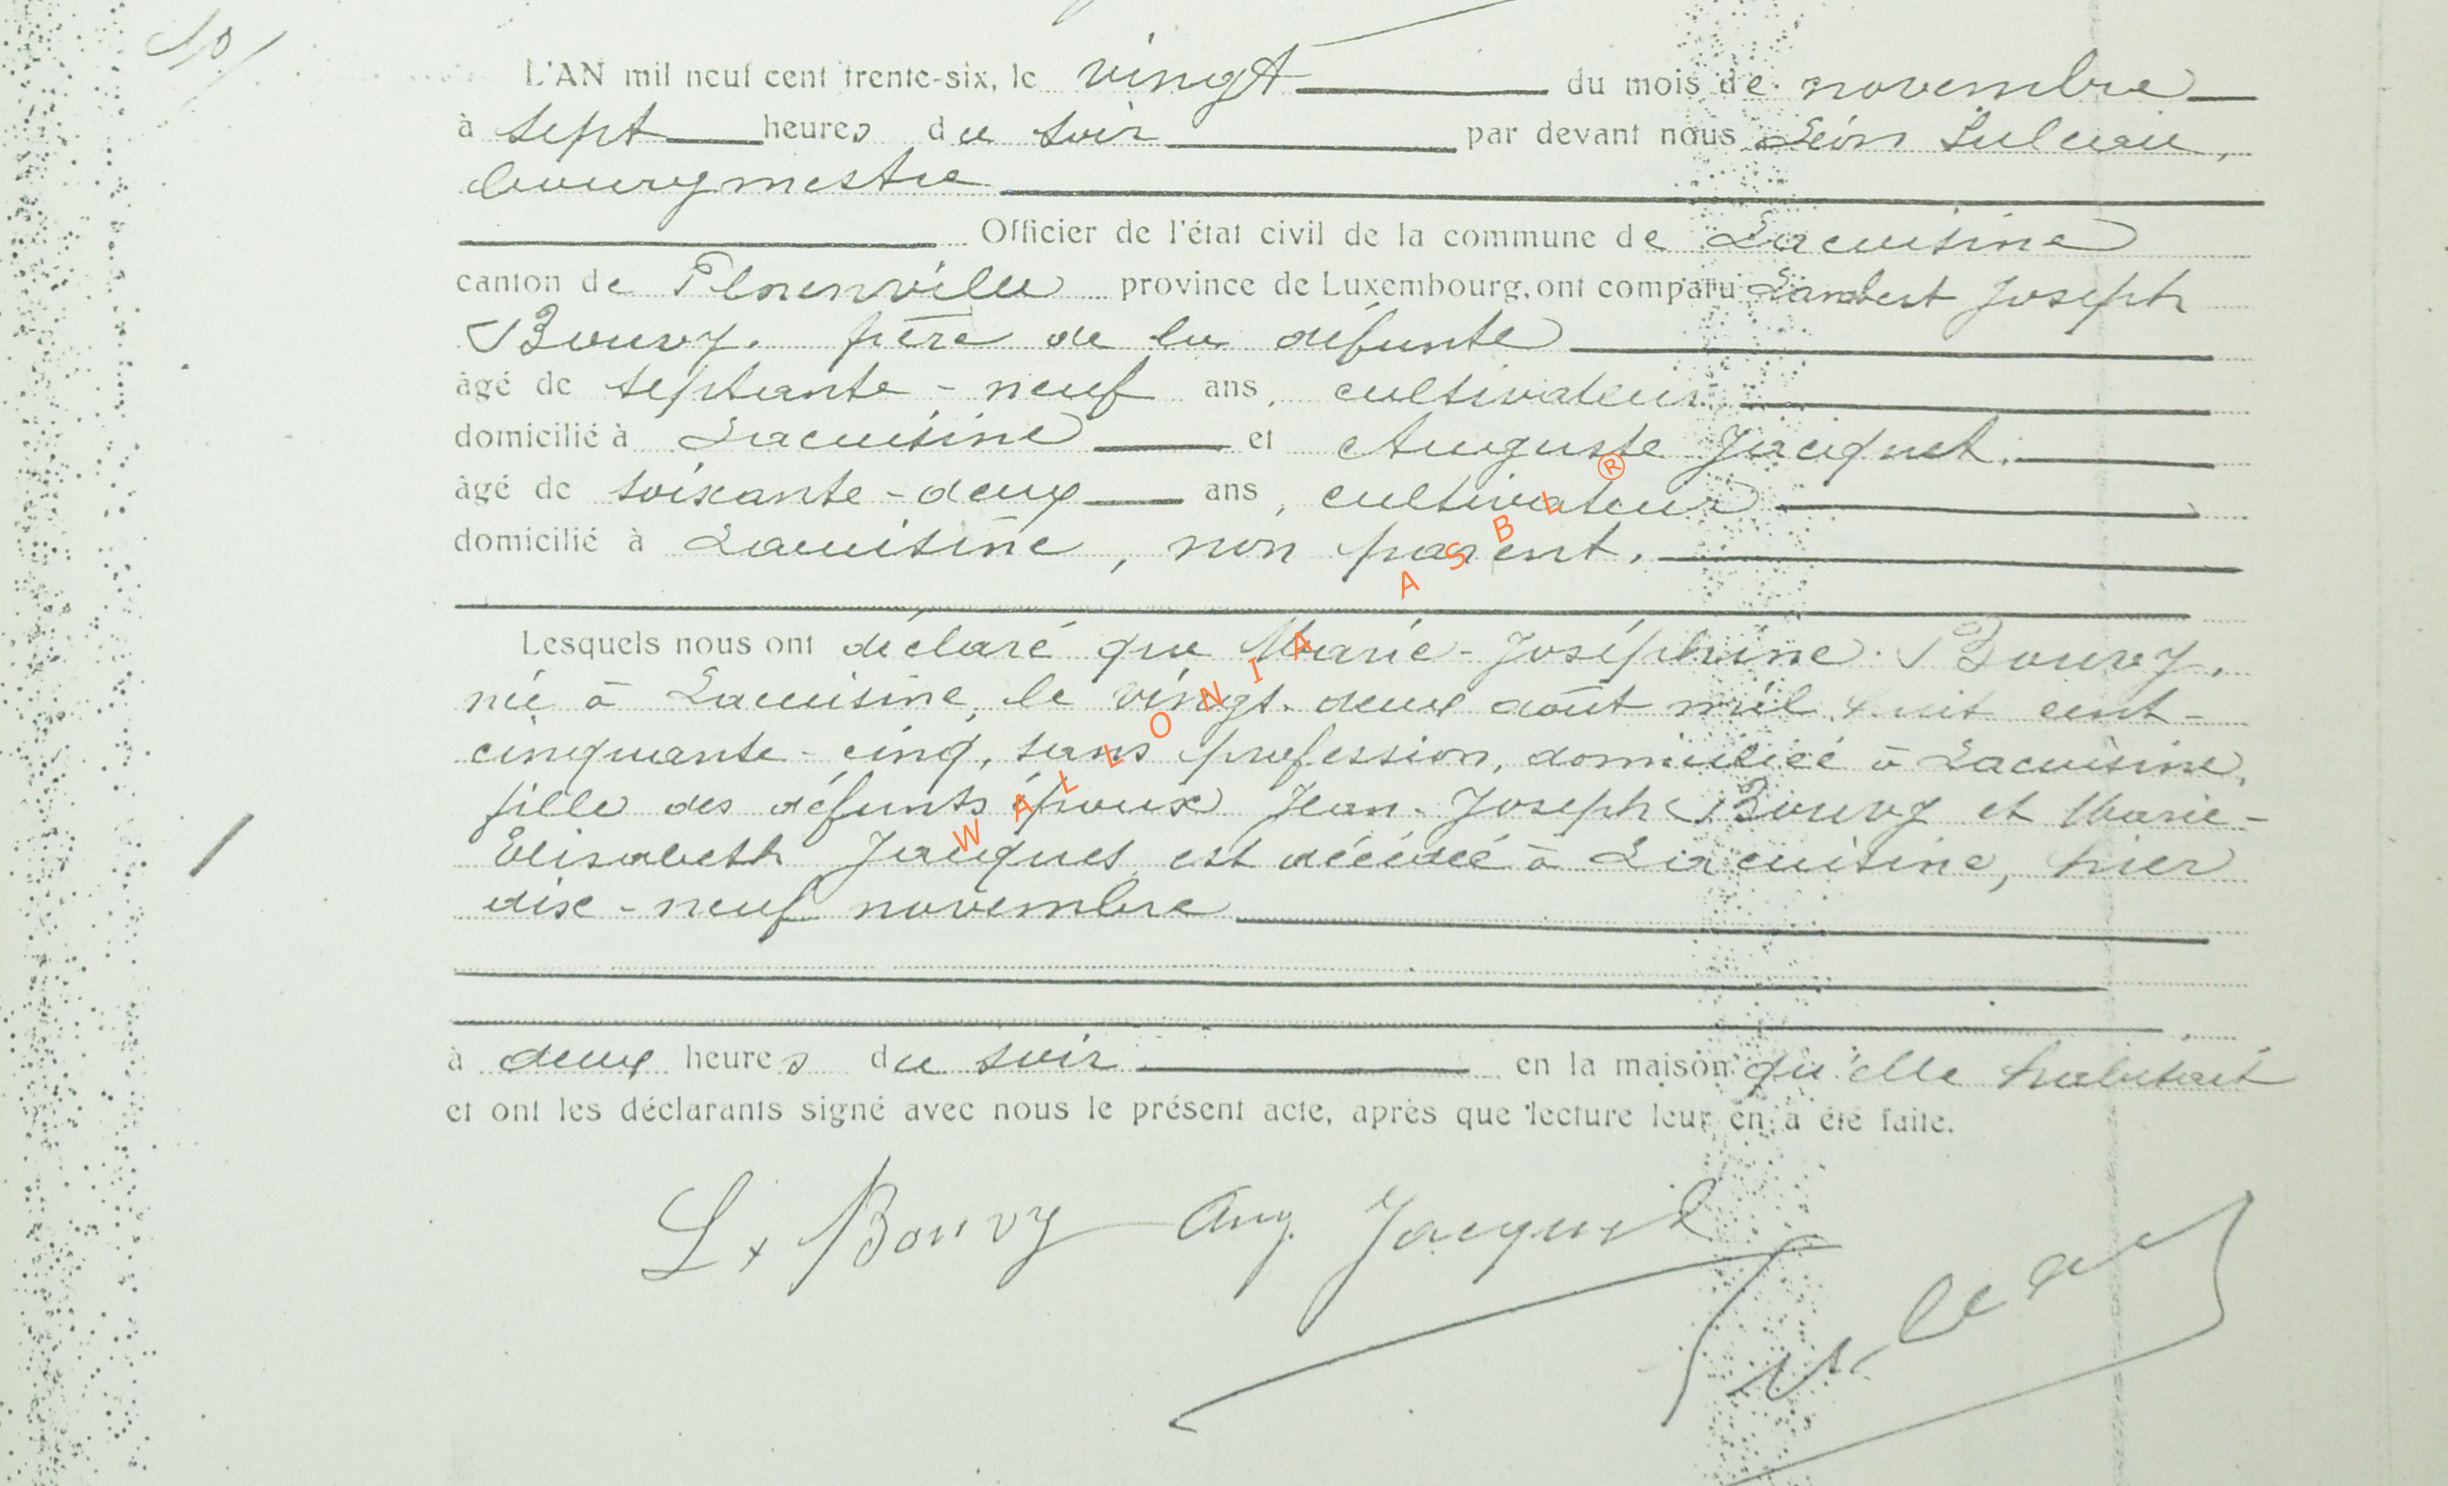 L'AN mil neuf cent trente-six, le vingt du mois de novembre
à sept heures du soir par devant nous Léon
bourgmestre
Officier de l'état civil de la commune de Lacuisine
canton de Florenville province de Luxembourg, ont comparu Lambert Joseph
Bouvy. frère de la défunte
âgé de septante-neuf ans, cultivateur.
domicilié à Lacuisine et Auguste Jacquet.
âgé de soixante-deux ans, cultivateur
domicilié à Lacuisine, non parent.
Lesquels nous ont déclaré que Marie-Joséphine Bouvy,
née à Lacuisine, le vingt-deux août mil huit cent-
cinquante-cinq, sans profession, domiciliée à Lacuisine,
fille des défunts époux Jean-Joseph Bouvy et Marie-
Elisabeth Jacques, est décédée à Lacuisine, hier
dix-neuf novembre
à deux heures du soir en la maison qu'elle habitait
et ont les déclarants signé avec nous le présent acte, après que lecture leur en a été faite.
L. Bouvy Aug. Jacquet
WALLONIA ASBL ®